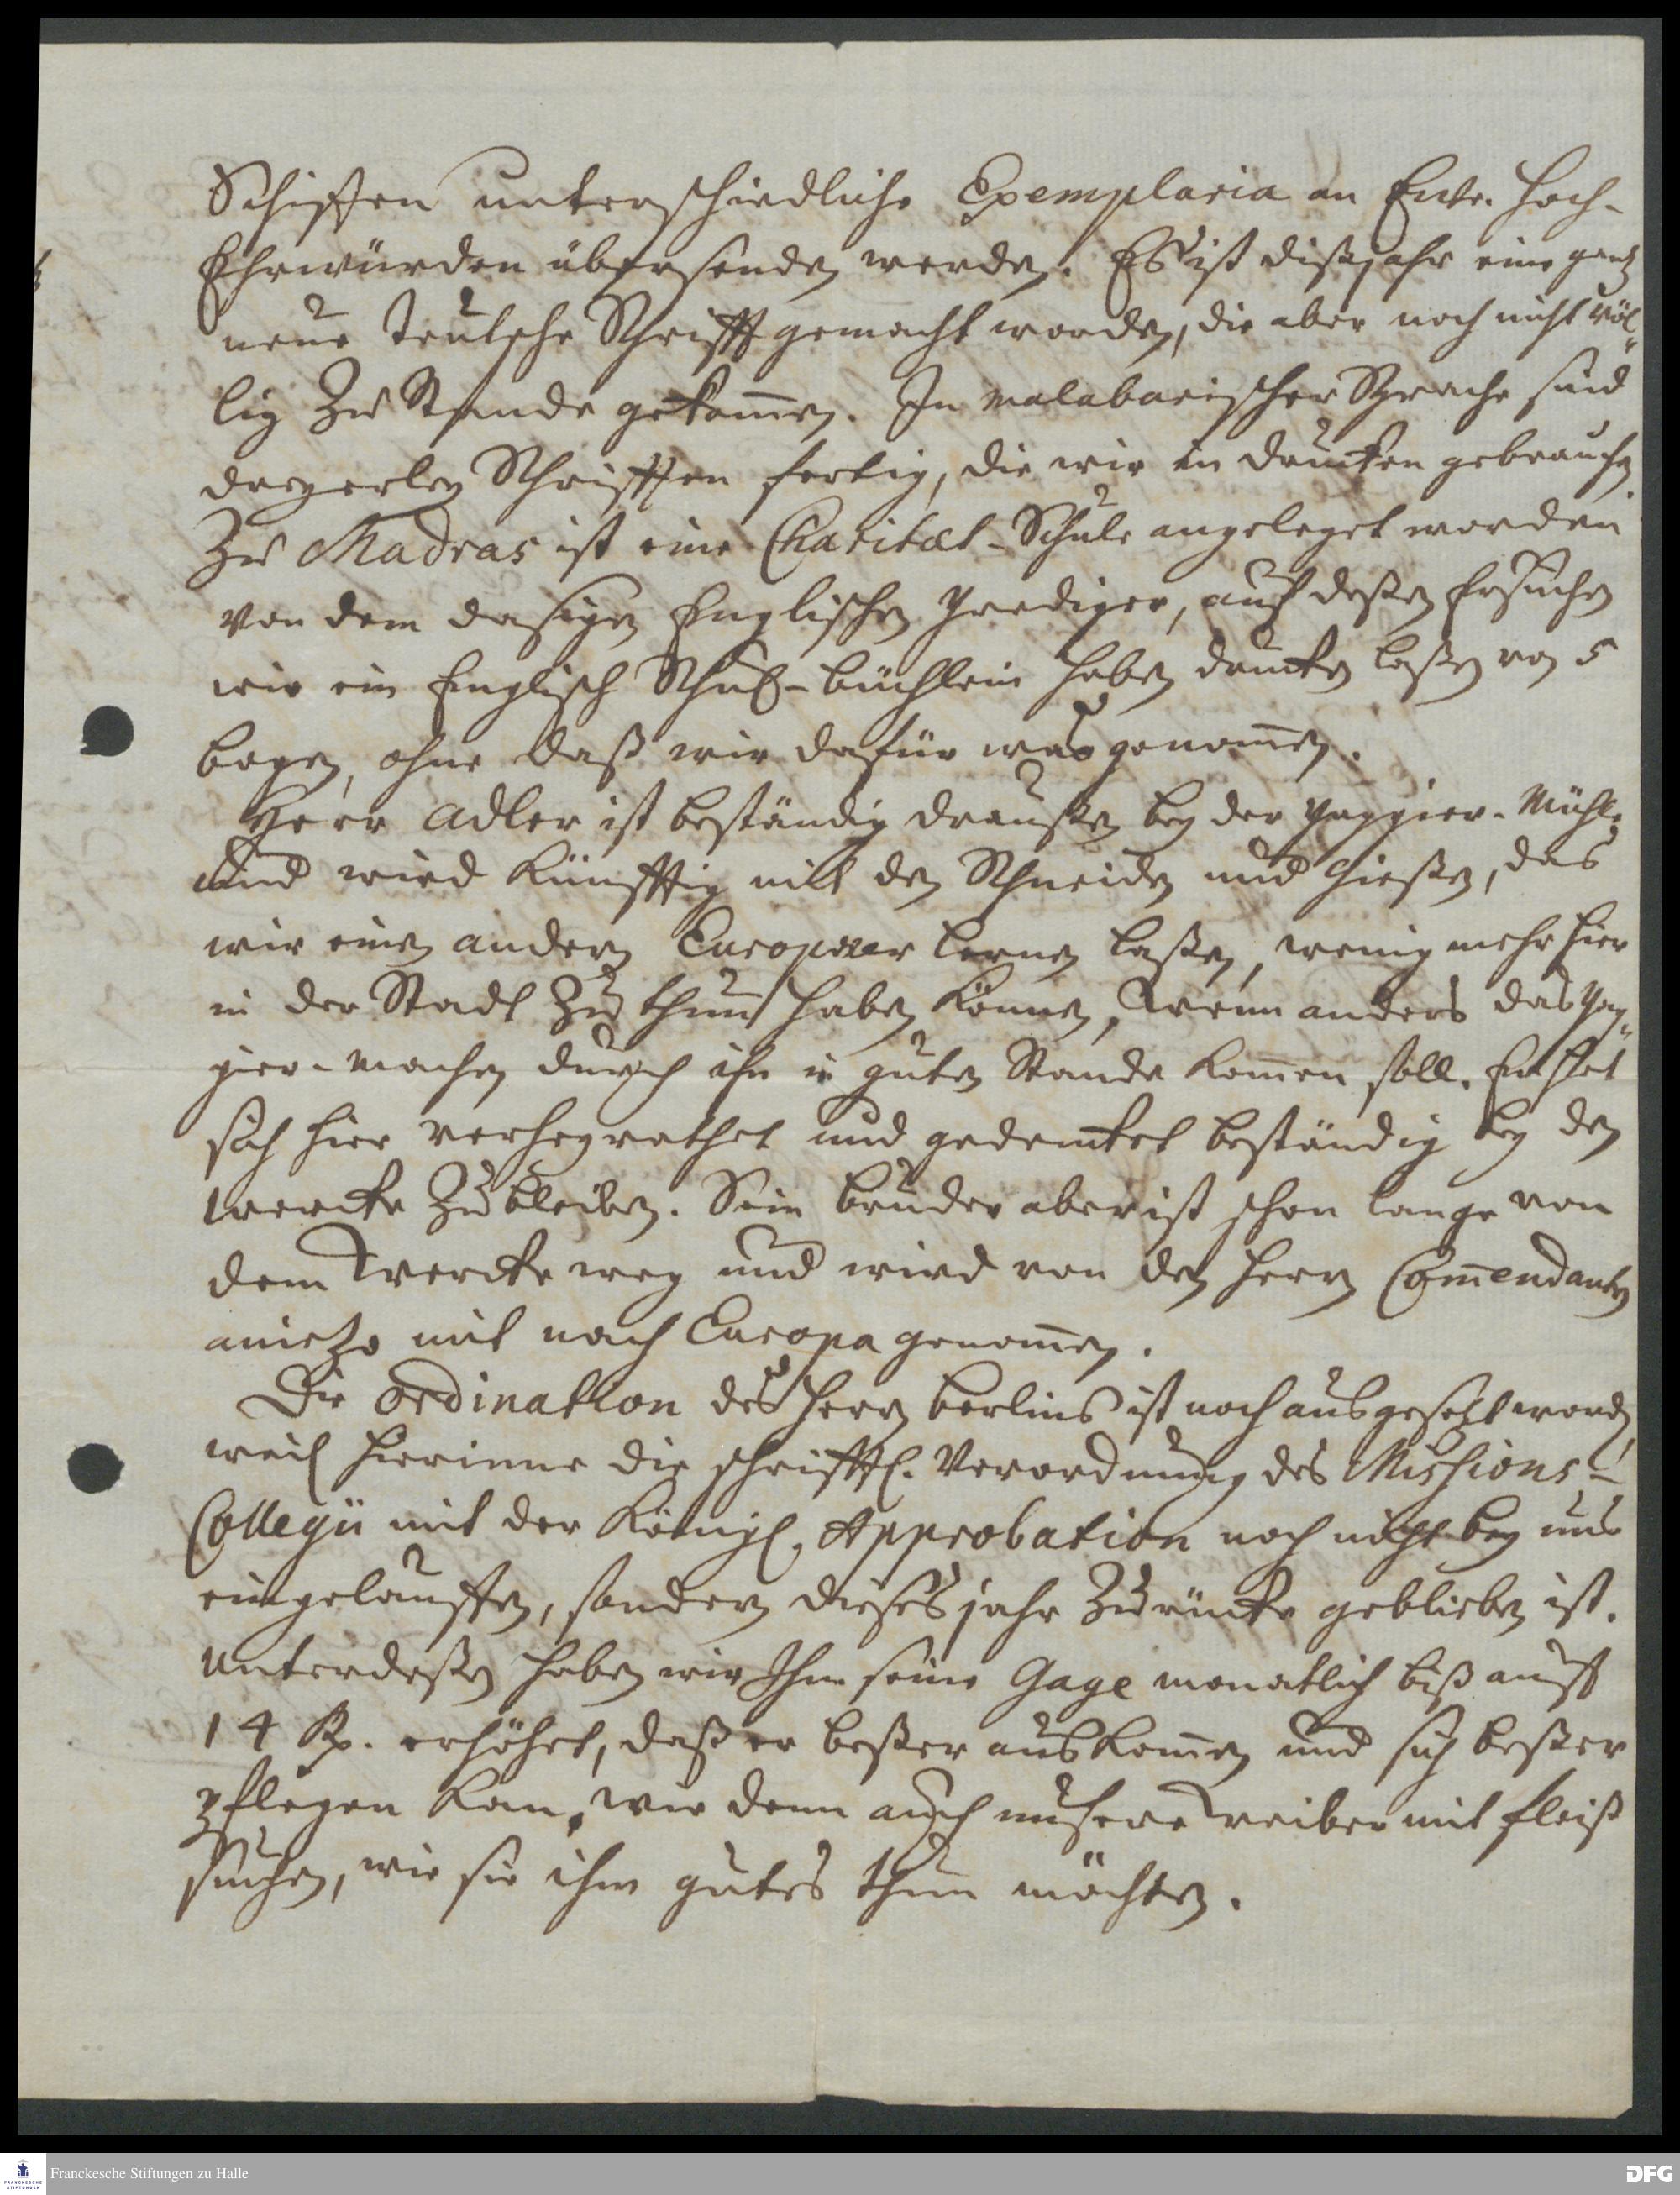 Schiffen unterschiedliche Exemplaria an Ewr. Hoch-
Ehrwürden übersenden werden. Es ist diß jahr eine gantz
neue teutsche Schrifft gemacht worden, die aber noch nicht völ-
lig zu Stande gekom̄en. In malabarischer Sprache sind
dreyerley Schrifften fertig, die wir in drucken gebrauchen.
Zu Madras ist eine Charitæt-Schule angeleget worden
von dem dasigen Englischen Prediger, auf deßen Ersuchen
wir ein Englisch Schul-büchlein haben drucken laßen von 5
bogen, ohne daß wir dafür was genom̄en.
Herr Adler ist beständig draußen bey der Pappier-Mühle
und wird künfftig mit den Schneiden und Gießen, das
wir einen andern Europæer lernen laßen, wenig mehr hier
in der Stadt zu thun haben können, wenn anders das Pap-
pier-machen durch ihn in guten Stande kom̄en soll. Er hat
sich hier verheyrathet und gedencket beständig bey den
wercke zu bleiben. Sein bruder aber ist schon lange von
dem wercke weg und wird von den Herrn Com̄endanten
anietzo mit nach Europa genom̄en.
Die ordination des Herrn Berlins ist noch ausgesetzt worden,
weil hierinne die schrifftl. Verordnung des Missions-
Collegii mit der Königl. Approbation noch nicht bey uns
eingelauffen, sondern dieses jahr zurücke geblieben ist.
Unterdeßen haben wir Ihm seine Gage monatlich biß auff
14 Rp. erhöhet, daß er beßer auskom̄en und sich beßer
pflegen kan, wie denn auch unsere Weiber mit fleiß
suchen, wie sie ihm gutes thun möchten.
Franckesche Stiftungen zu Halle
FRANCKESCHE STIFTUNGEN
DFG